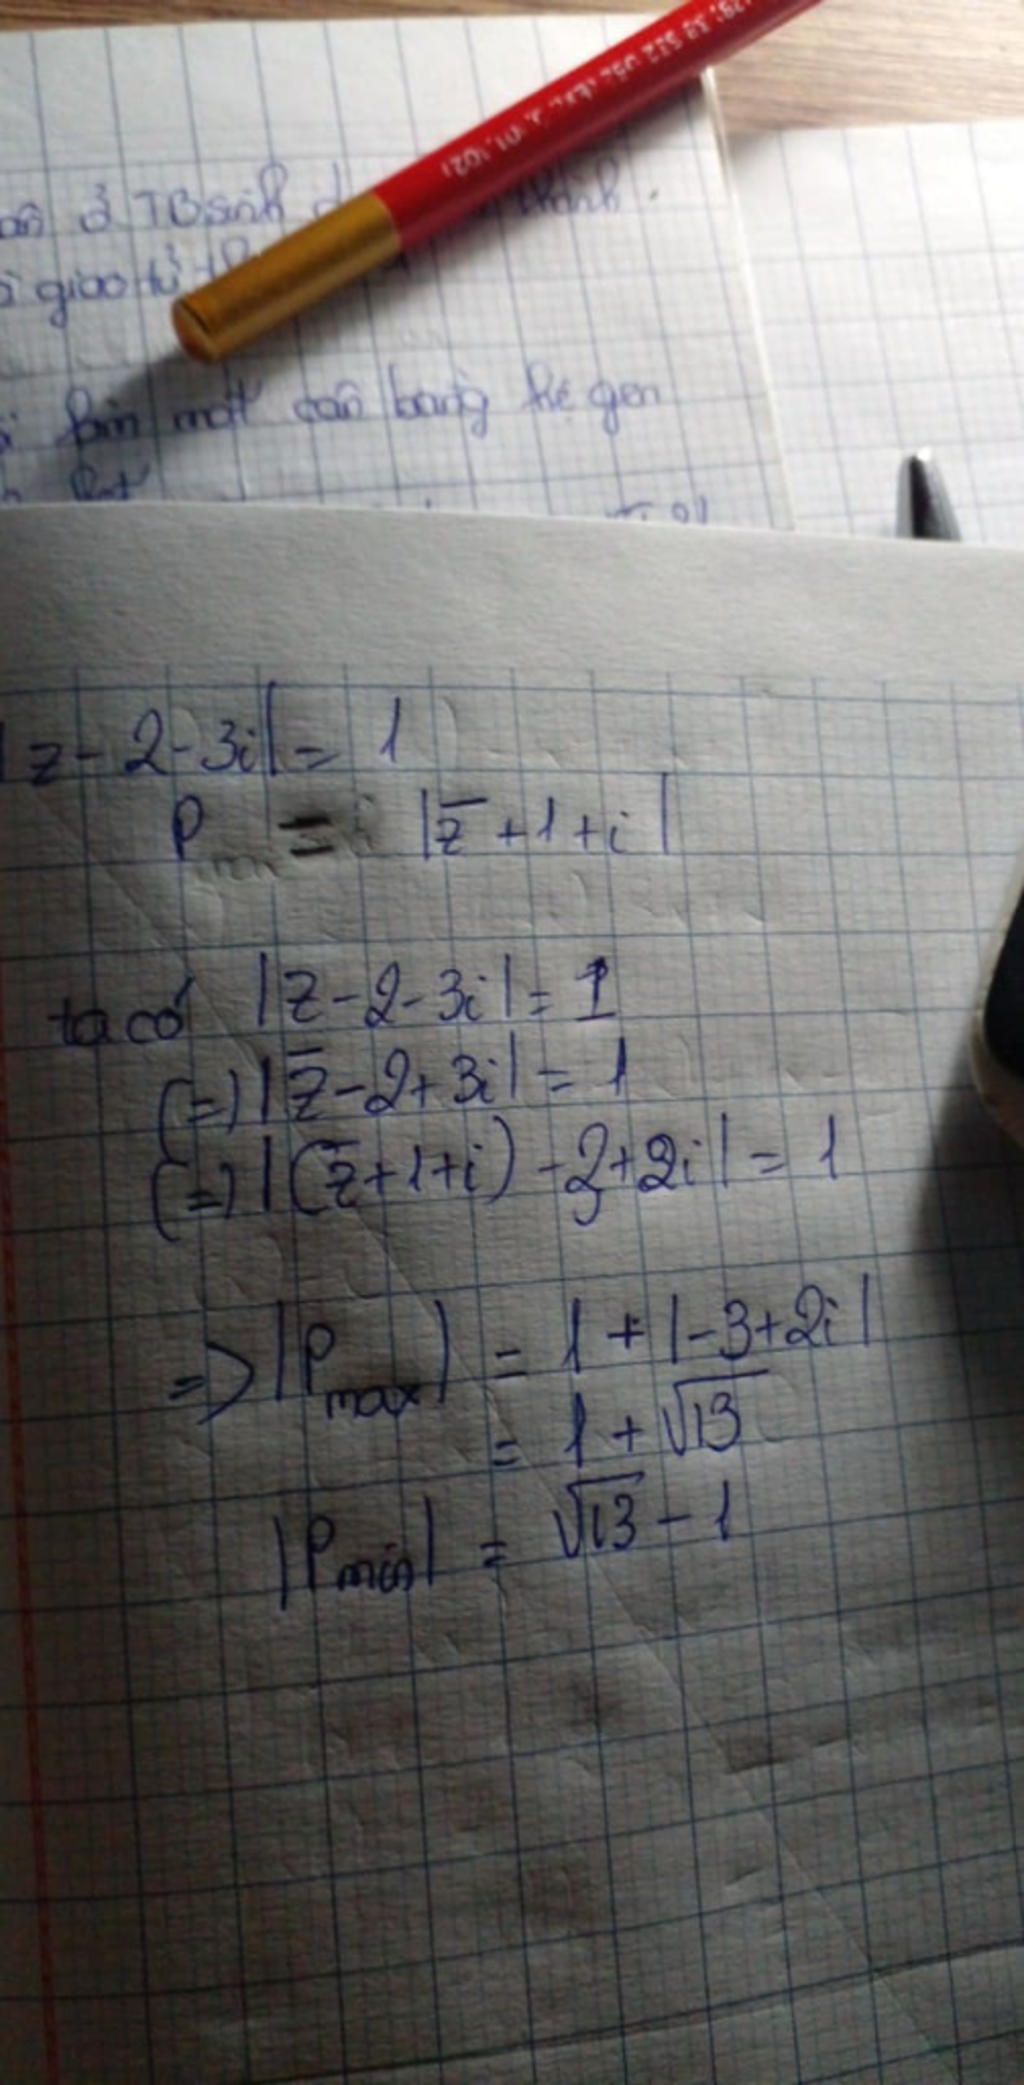 ở TB sinh
giao tử
làm mất cân bằng hệ gen
|z - 2 - 3i| = 1
P = |z̅ + 1 + i|
ta có |z - 2 - 3i| = 1
(=) |z̅ - 2 + 3i| = 1
(=) |(z̅ + 1 + i) - 3 + 2i| = 1
=> |Pmax| = 1 + |-3 + 2i|
= 1 + √13
|Pmin| = √13 - 1